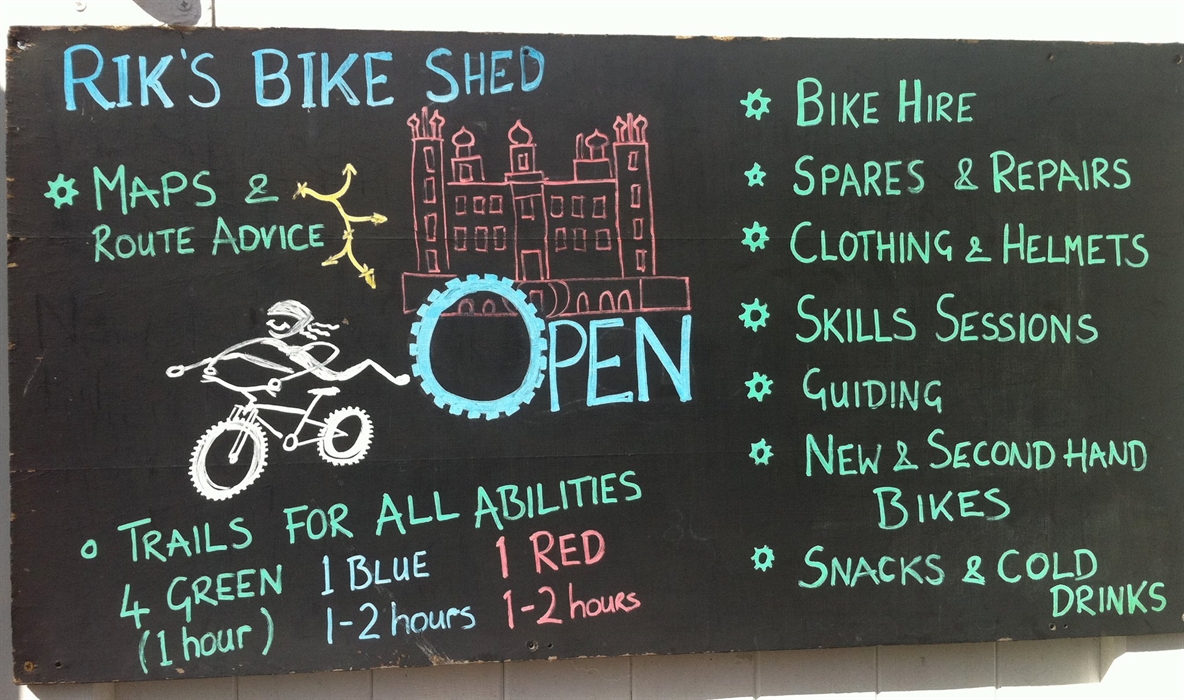 RIK'S BIKE SHED
MAPS &
ROUTE ADVICE
OPEN
TRAILS FOR ALL ABILITIES
4 GREEN
(1 hour)
1 BLUE
1-2 hours
1 RED
1-2 hours
BIKE HIRE
SPARES & REPAIRS
CLOTHING & HELMETS
SKILLS SESSIONS
GUIDING
NEW & SECOND HAND
BIKES
SNACKS & COLD
DRINKS